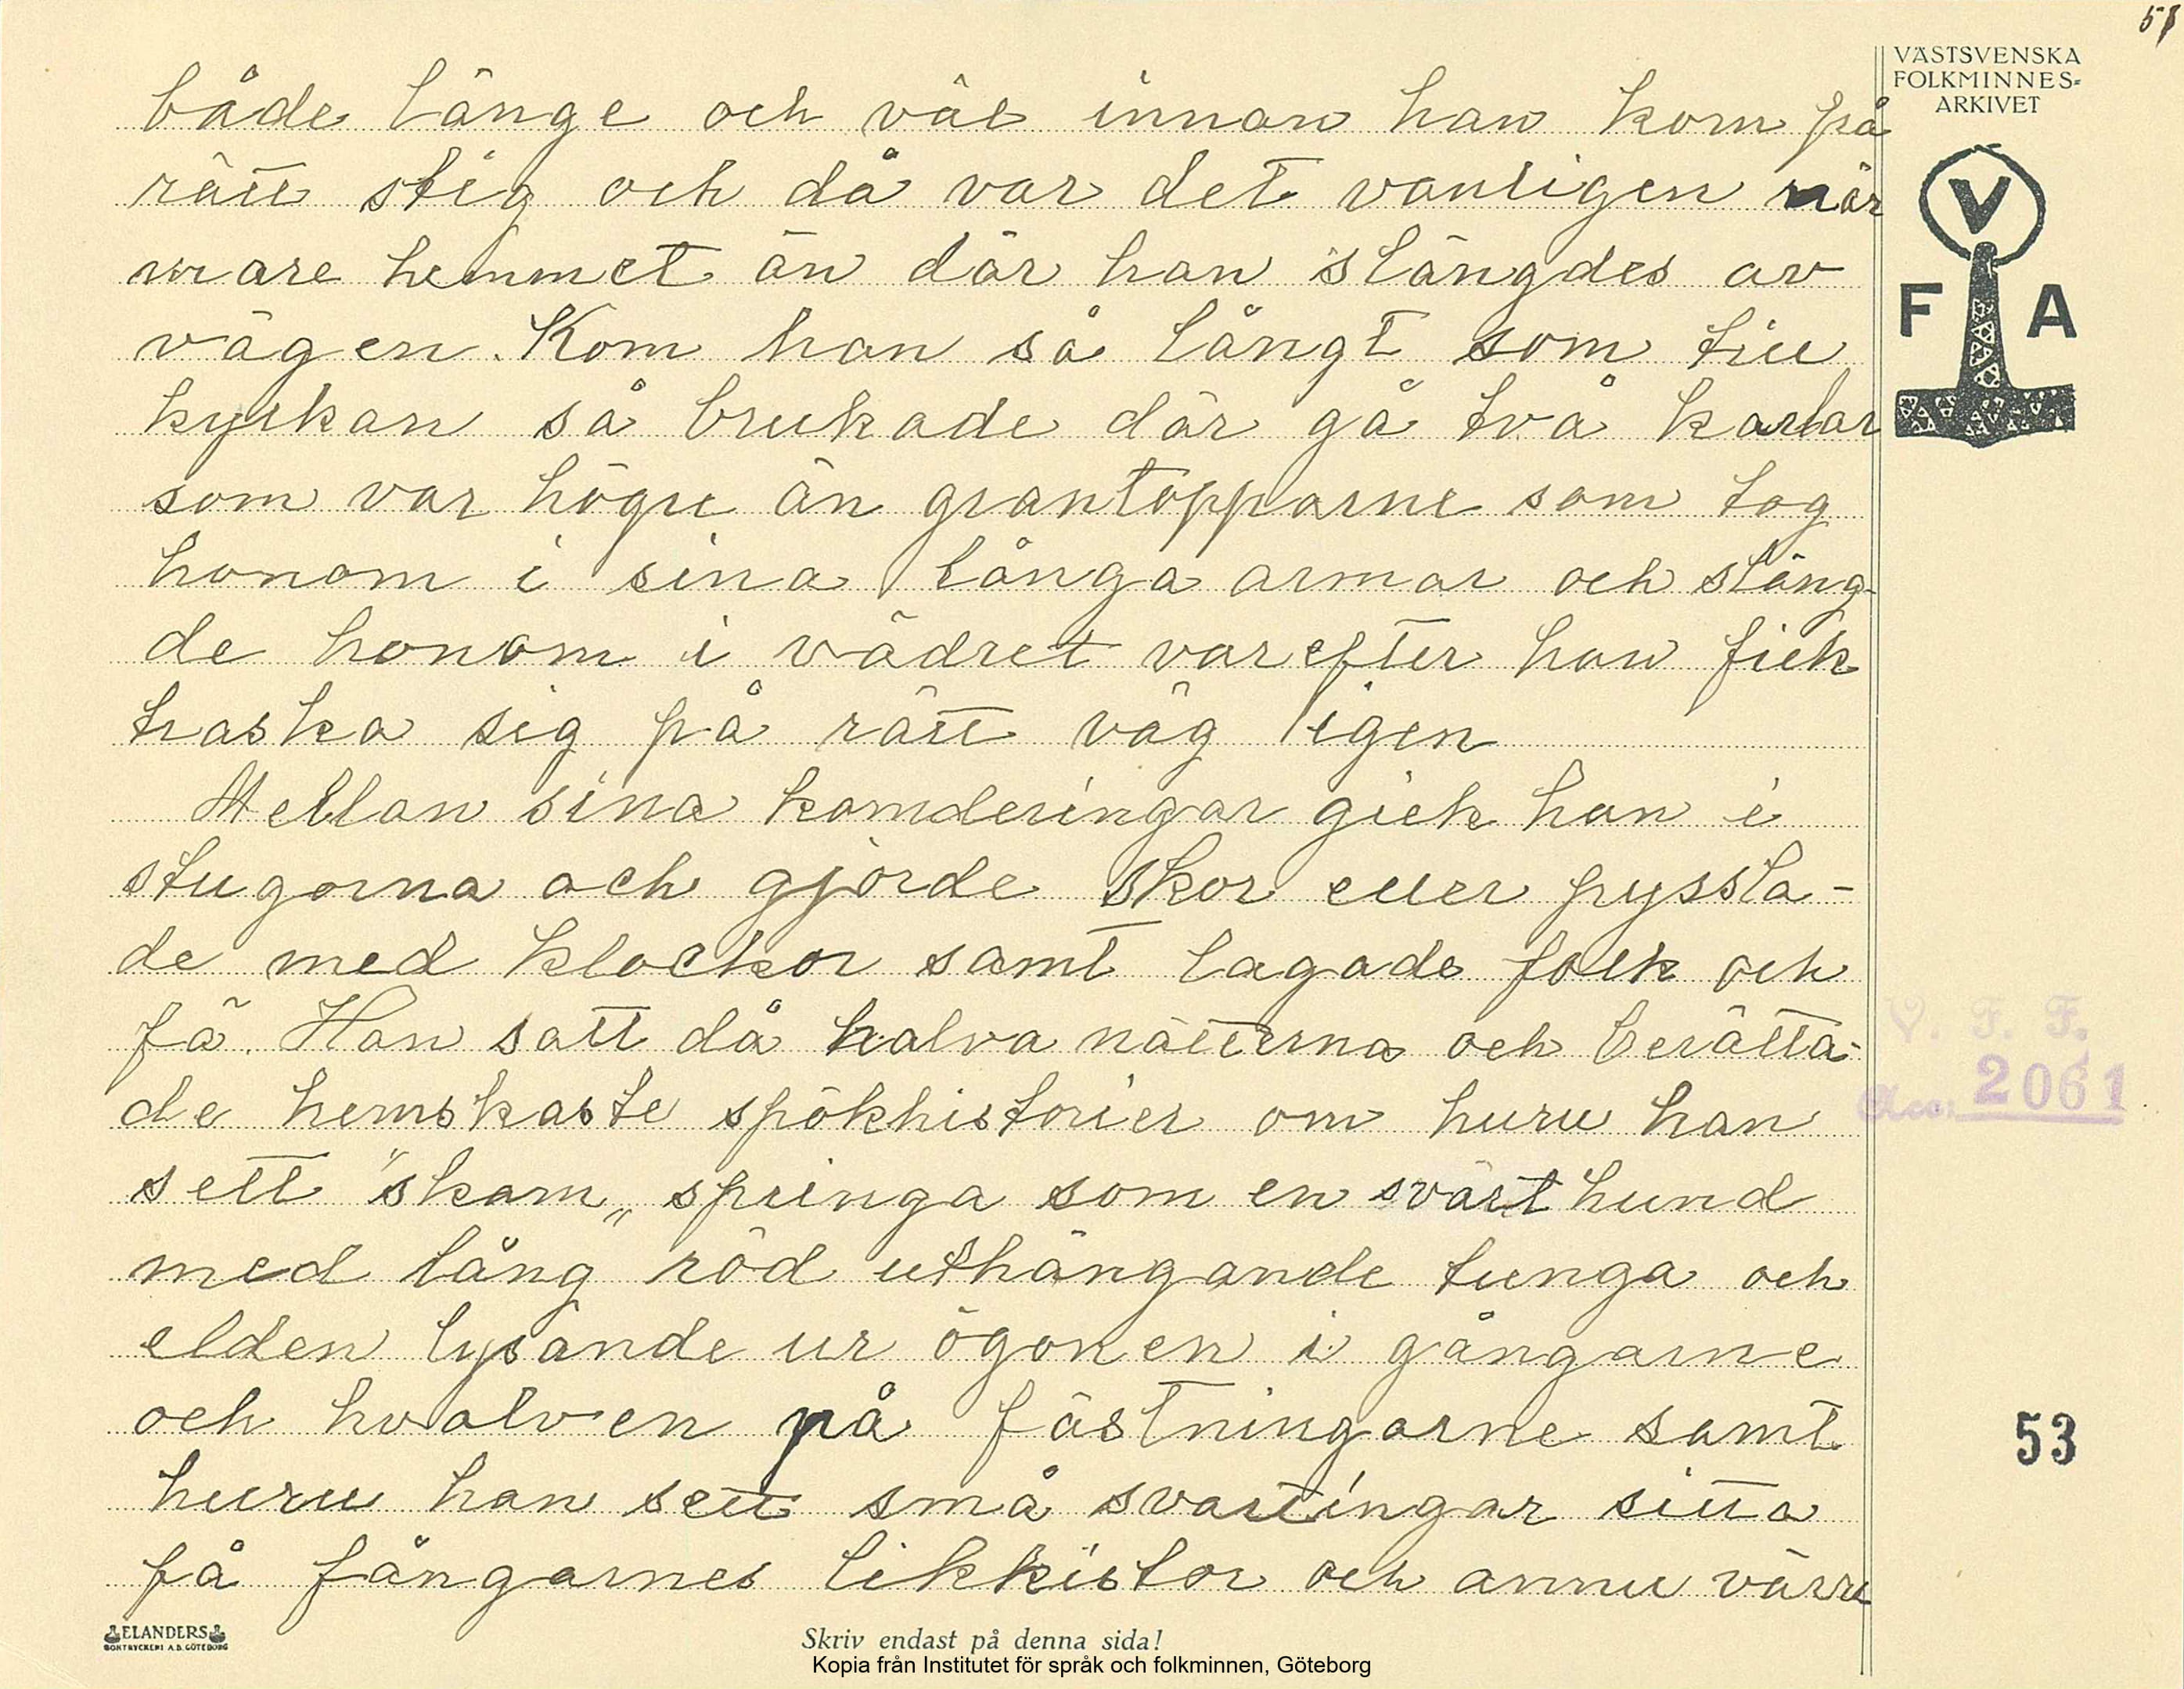 51
VÄSTSVENSKA
FOLKMINNES=
ARKIVET
V
F A
både länge och väl innan han kom på
rätt stig och då var det vanligen när
mare hemmet än där han slängdes av
vägen. Kom han så långt som till
kyrkan så brukade där gå två karlar
som var högre än grantopparne som tog
honom i sina långa armar och släng-
de honom i vädret varefter han fick
traska sig på rätt väg igen
Mellan sina komderingar gick han i
stugorna och gjorde skor eller pyssla-
de med klockor samt lagade folk och
fä. Han satt då halva nätterna och berätta-
de hemskaste spökhistorier om huru han
sett "skam„ springa som en svart hund
med lång röd uthängande tunga och
elden lysande ur ögonen i gångarne
och hvalven på fästningarne samt
huru han sett små svartingar sitta
på fångarnes likkistor och annu värre
V. F. F.
Acc. 2061
53
ELANDERS
BOKTRYCKERI A.B. GÖTEBORG
Skriv endast på denna sida!
Kopia från Institutet för språk och folkminnen, Göteborg